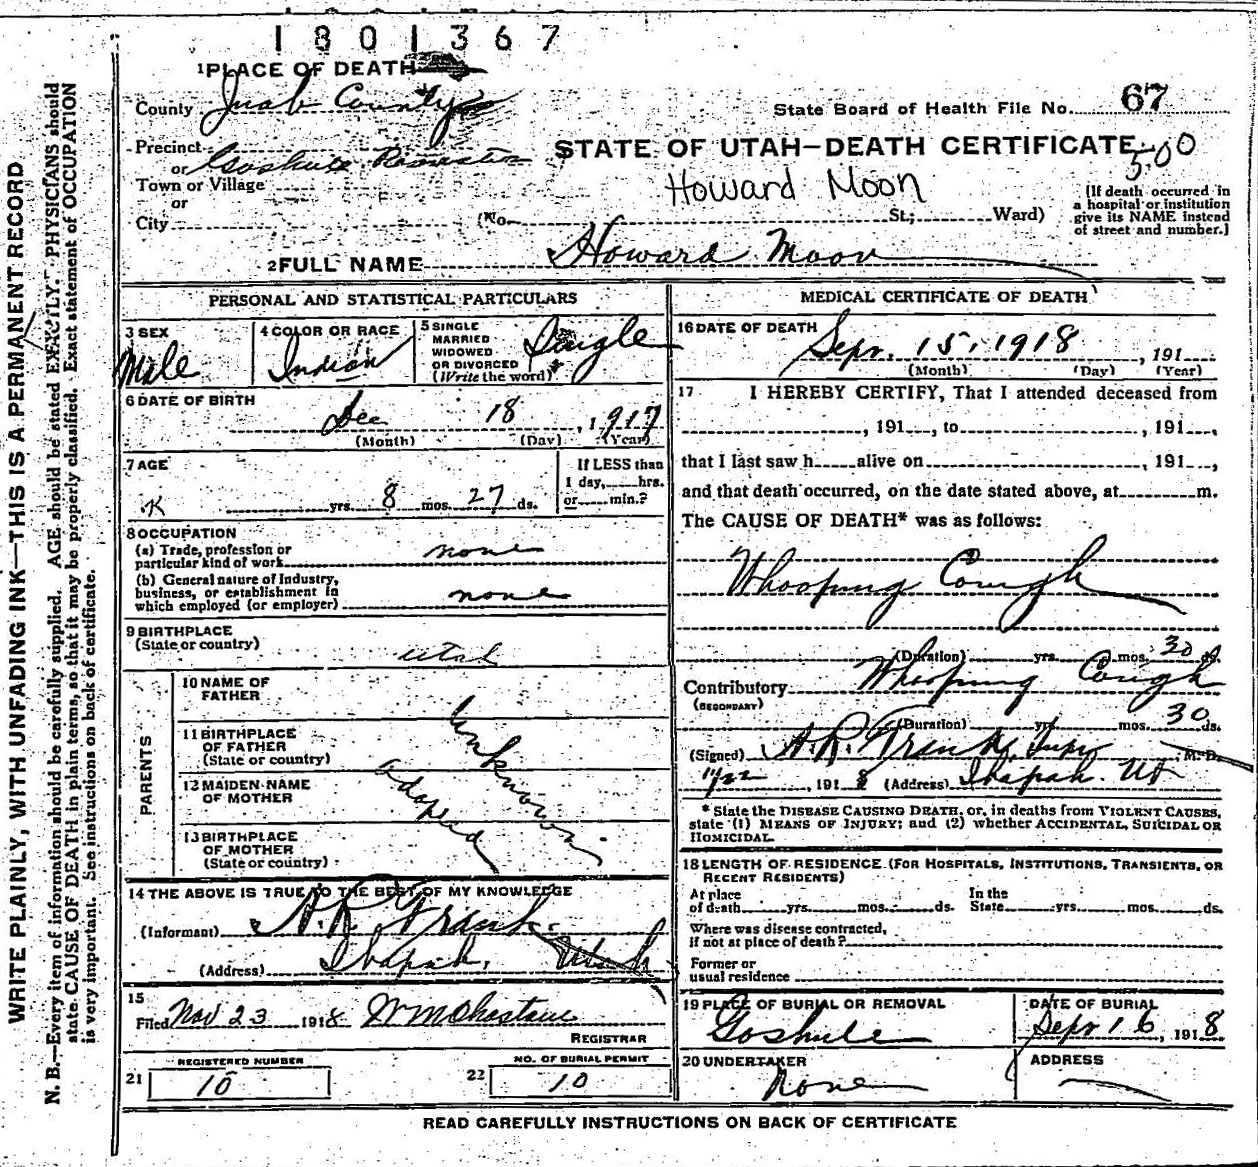 1801367
1 PLACE OF DEATH
County Juab County
State Board of Health File No. 67
Precinct
or Goshute
Town or Village
or
City
STATE OF UTAH—DEATH CERTIFICATE
500
Howard Moon
(No. St.; Ward)
[If death occurred in
a hospital or institution
give its NAME instead
of street and number.]
2 FULL NAME Howard Moon
PERSONAL AND STATISTICAL PARTICULARS
3 SEX
Male
4 COLOR OR RACE
Indian
5 SINGLE
MARRIED
WIDOWED
OR DIVORCED
(Write the word)
Single
6 DATE OF BIRTH
Dec 18, 1917
(Month) (Day) (Year)
7 AGE
yrs. 8 mos. 27 ds.
If LESS than
1 day, hrs.
or min.?
8 OCCUPATION
(a) Trade, profession or
particular kind of work none
(b) General nature of Industry,
business, or establishment in
which employed (or employer) none
9 BIRTHPLACE
(State or country) Utah
PARENTS
10 NAME OF
FATHER
11 BIRTHPLACE
OF FATHER
(State or country)
12 MAIDEN NAME
OF MOTHER
13 BIRTHPLACE
OF MOTHER
(State or country)
unknown
adopted
14 THE ABOVE IS TRUE TO THE BEST OF MY KNOWLEDGE
(Informant) A. R. Frank
(Address) Ibapah, Utah
15
Filed Nov 23 1918
REGISTRAR
REGISTERED NUMBER
21 10
NO. OF BURIAL PERMIT
22 10
MEDICAL CERTIFICATE OF DEATH
16 DATE OF DEATH
Sept. 15, 1918, 191
(Month) (Day) (Year)
17 I HEREBY CERTIFY, That I attended deceased from
, 191 , to , 191 ,
that I last saw h alive on , 191 ,
and that death occurred, on the date stated above, at m.
The CAUSE OF DEATH* was as follows:
Whooping Cough
(Duration) yrs. mos. 30 ds.
Contributory Whooping Cough
(SECONDARY)
(Duration) yrs. mos. 30 ds.
(Signed) A. R. Frank, Supt. M. D.
11/22, 1918 (Address) Ibapah. Ut
* State the DISEASE CAUSING DEATH, or, in deaths from VIOLENT CAUSES,
state (1) MEANS OF INJURY; and (2) whether ACCIDENTAL, SUICIDAL OR
HOMICIDAL.
18 LENGTH OF RESIDENCE (FOR HOSPITALS, INSTITUTIONS, TRANSIENTS, OR
RECENT RESIDENTS)
At place
of death yrs. mos. ds.
In the
State yrs. mos. ds.
Where was disease contracted,
if not at place of death?
Former or
usual residence
19 PLACE OF BURIAL OR REMOVAL
Goshute
DATE OF BURIAL
Sept 16, 1918
20 UNDERTAKER
None
ADDRESS
READ CAREFULLY INSTRUCTIONS ON BACK OF CERTIFICATE
WRITE PLAINLY, WITH UNFADING INK—THIS IS A PERMANENT RECORD
N. B.—Every item of information should be carefully supplied. AGE should be stated EXACTLY. PHYSICIANS should
state CAUSE OF DEATH in plain terms, so that it may be properly classified. Exact statement of OCCUPATION
is very important. See instructions on back of certificate.